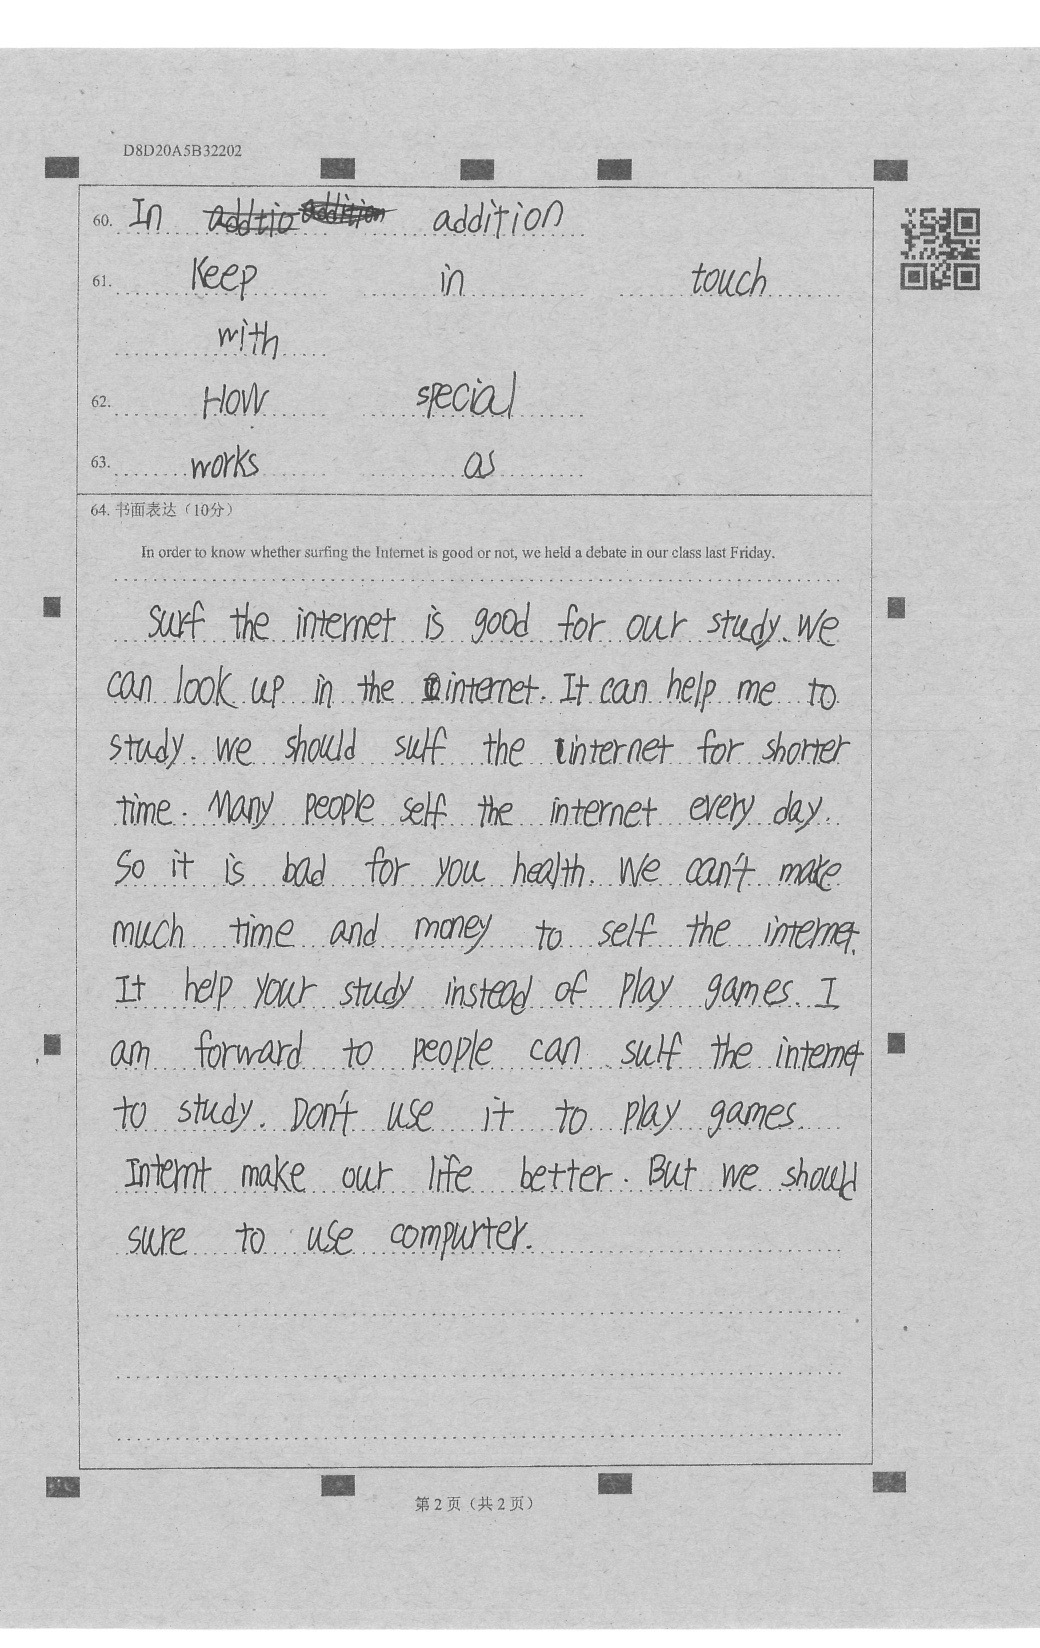 D8D20A5B32202
60. In addition
61. Keep in touch
with
62. How special
63. works as
64. 书面表达（10分）
In order to know whether surfing the Internet is good or not, we held a debate in our class last Friday.
Surf the internet is good for our study. We
can look up in the internet. It can help me to
study. We should sulf the internet for shorter
time. Many people self the internet every day.
So it is bad for you health. We can't make
much time and money to self the internet.
It help your study instead of play games. I
am forward to people can sulf the internet
to study. Don't use it to play games.
Internt make our life better. But we should
sure to use compurter.
第2页（共2页）